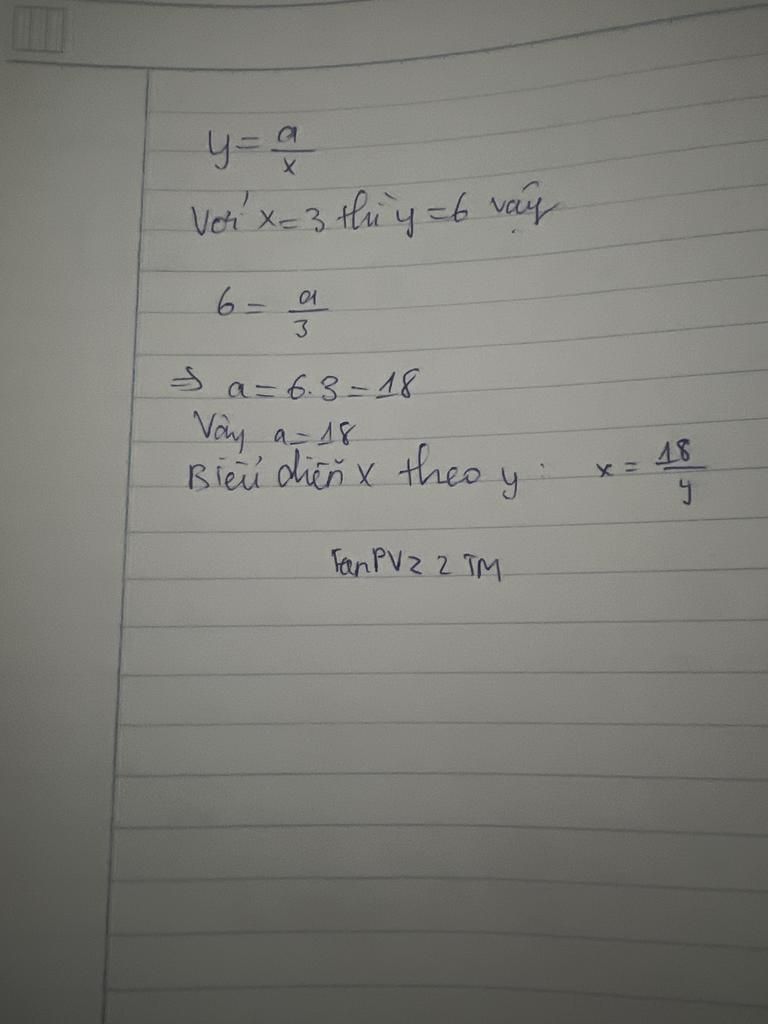 y = a/x
Với x = 3 thì y = 6 vậy
6 = a/3
=> a = 6.3 = 18
Vậy a = 18
Biểu diễn x theo y : x = 18/y
FanPVZ 2 TM